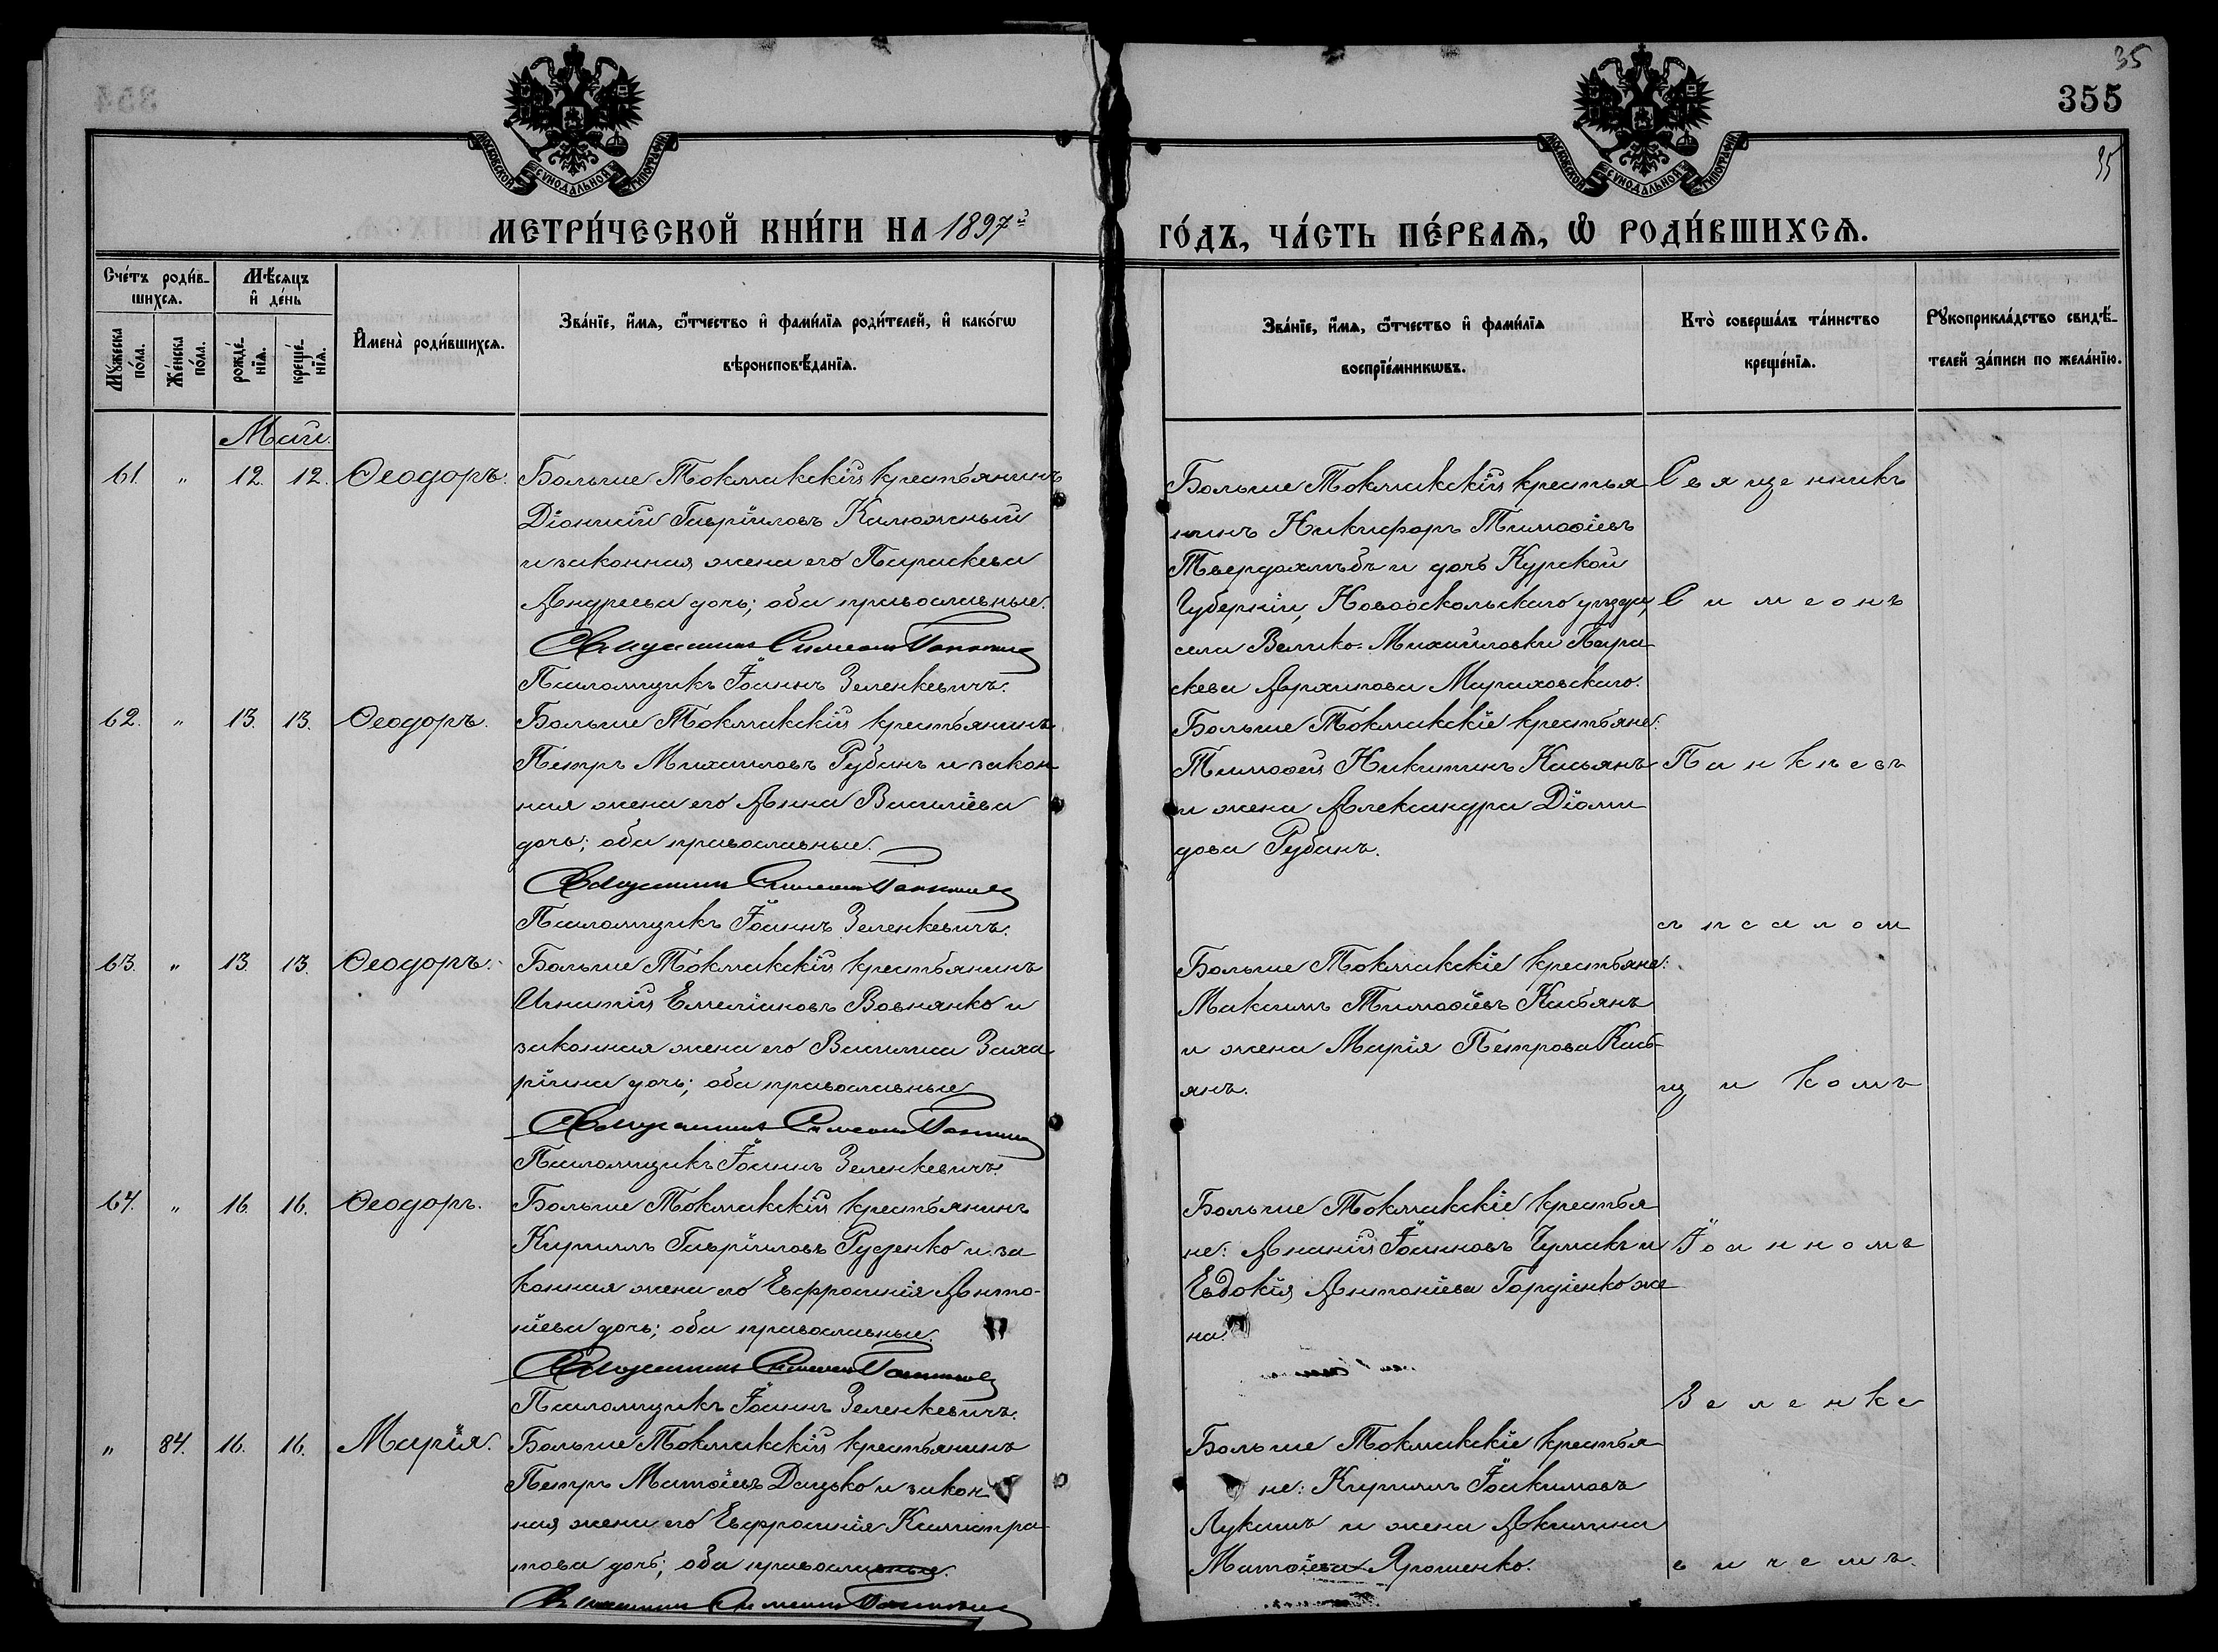 35
355
35
МОСКОВСКОЙ СѴНОДАЛЬНОЙ ТИПОГРАФІИ
МОСКОВСКОЙ СѴНОДАЛЬНОЙ ТИПОГРАФІИ
МЕТРИ́ЧЕСКОЙ КНИ́ГИ НА 1897й
ГО́ДЪ, ЧА́СТЬ ПЕ́РВАѦ, Ѡ҆ РОДИ́ВШИХСѦ.
Сче́тъ роди́в-
шихсѧ.
Мѣ́сѧцъ
и҆ де́нь
Мꙋ́жеска по́ла.
Же́нска по́ла.
рожде́-нїѧ.
креще́-нїѧ.
И҆мена̀ роди́вшихсѧ.
Зва́нїе, и҆́мѧ, ѻ҆́тчество и҆ фамі́лїѧ роди́телей, и҆ како́гѡ
вѣроисповѣ́данїѧ.
Зва́нїе, и҆́мѧ, ѻ҆́тчество и҆ фамі́лїѧ
воспрїе́мникѡвъ.
Кто̀ соверша́лъ та́инство
креще́нїѧ.
Рꙋкоприкла́дство свидѣ́-
телей за́писи по жела́нїю.
Май.
61. " 12. 12. Ѳеодоръ.
Больше Токмакскій крестьянинъ
Діонисій Гавріиловъ Калюжный
и законная жена его Параскева
Андреева дочь; оба православные.
Священникъ Симеонъ Панкѣевъ
Псаломщикъ Іоаннъ Зеленкевичъ.
Больше Токмакскій крестья
нинъ Никифоръ Тимоѳіевъ
Твердохлѣбъ и дочь Курской
Губерніи, Новооскольскаго уѣзда,
села Велико-Михайловки Пара
скева Архипова Мараховскаго.
62. " 13. 13. Ѳеодоръ.
Больше Токмакскій крестьянинъ
Петръ Михаиловъ Рубанъ и закон
ная жена его Анна Василіева
дочь; оба православные.
Священникъ Симеонъ Панкѣевъ
Псаломщикъ Іоаннъ Зеленкевичъ.
Больше Токмакскіе крестьяне:
Тимоѳей Никитинъ Касьянъ
и жена Александра Діоми
дова Рубанъ.
63. " 13. 13. Ѳеодоръ.
Больше Токмакскій крестьянинъ
Игнатій Емеліановъ Вовнянко и
законная жена его Василиса Заха
ріина дочь; оба православные
Священникъ Симеонъ Панкѣевъ
Псаломщикъ Іоаннъ Зеленкевичъ.
Больше Токмакскіе крестьяне:
Максимъ Тимоѳіевъ Касьянъ
и жена Марія Петрова Кась-
янъ.
64. " 16. 16. Ѳеодоръ.
Больше Токмакскій крестьянинъ
Кириллъ Гавріиловъ Руденко и за
конная жена его Евфросинія Анто-
ніева дочь; оба православные.
Священникъ Симеонъ Панкѣевъ
Псаломщикъ Іоаннъ Зеленкевичъ.
Больше Токмакскіе крестья
не: Ананій Іоанновъ Чумакъ и
Евдокія Антоніева Гордіенко же
на.
" 84. 16. 16. Марія.
Больше Токмакскій крестьянинъ
Петръ Матѳіевъ Дацько и закон
ная жена его Евфросинія Калистра-
това дочь; оба православные.
Священникъ Симеонъ Панкѣевъ
Больше Токмакскіе крестья
не: Кириллъ Іоакимовъ
Лукашъ и жена Акилина
Матѳіева Ярошенко.
Священникъ
Симеонъ
Панкѣевъ
съ псалом
щикомъ
Іоанномъ
Зеленке
вичемъ.